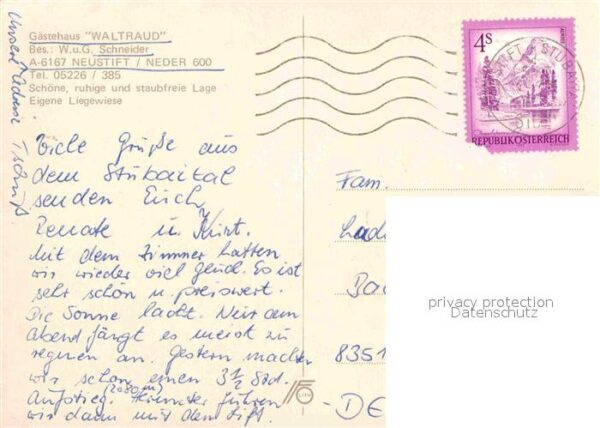 Unsere Adresse Tschüß
Gästehaus "WALTRAUD"
Bes.: W.u.G. Schneider
A-6167 NEUSTIFT / NEDER 600
Tel. 05226 / 385
Schöne, ruhige und staubfreie Lage
Eigene Liegewiese
Viele Grüße aus
dem Stubaital
senden Euch
Renate u. Kurt.
Mit dem Zimmer hatten
wir wieder viel Glück. Es ist
sehr schön u. preiswert.
Die Sonne lacht. Nur am
Abend fängt es meist zu
regnen an. Gestern machten
wir schon einen 3 1/2 Std.
(2080 m)
Aufstieg. Herunter fuhren
wir dann mit dem Lift.
4S
REPUBLIK ÖSTERREICH
STUBAI
Fam.
8351
DE
privacy protection
Datenschutz